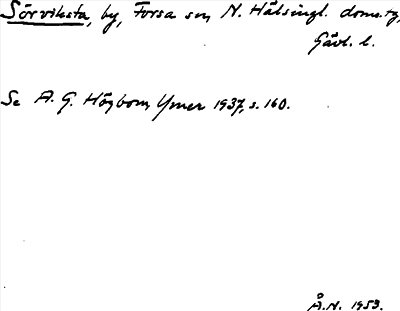 Sörviksta, by, Forsa sn, N. Hälsingl. doms.ty,
Gävl. l.
Se A. G. Högbom, Ymer 1937, s. 160.
Å.N. 1953.